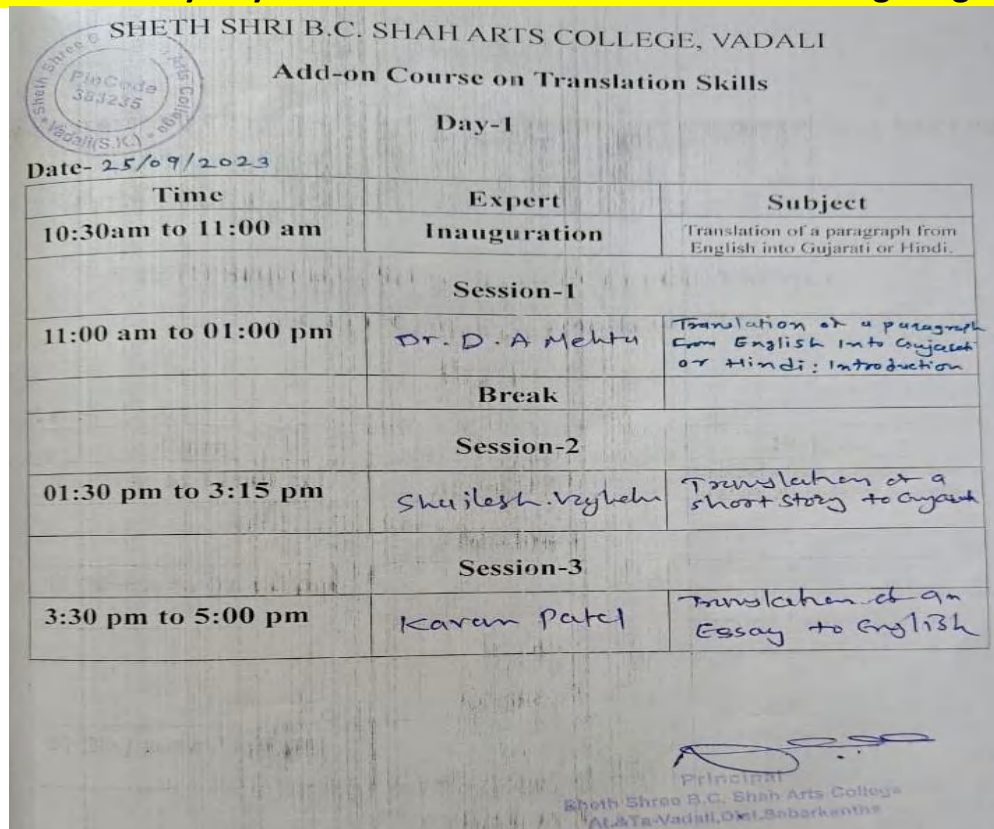 SHETH SHRI B.C. SHAH ARTS COLLEGE, VADALI
Add-on Course on Translation Skills
Day-1
Sheth Shree B Arts College
PinCode
383235
Vadali(S.K.)
Date- 25/09/2023
Time Expert Subject
10:30am to 11:00 am Inauguration Translation of a paragraph from
English into Gujarati or Hindi.
Session-1
11:00 am to 01:00 pm Dr. D. A Mehta Translation of a paragraph
from English Into Gujarati
or Hindi: Introduction
Break
Session-2
01:30 pm to 3:15 pm Shailesh. Translation of a
short story to
Session-3
3:30 pm to 5:00 pm Karan Patel Translation of an
Essay to English
Principal
Sheth Shree B.C. Shah Arts College
At.&Ta-Vadali,Dist.Sabarkantha